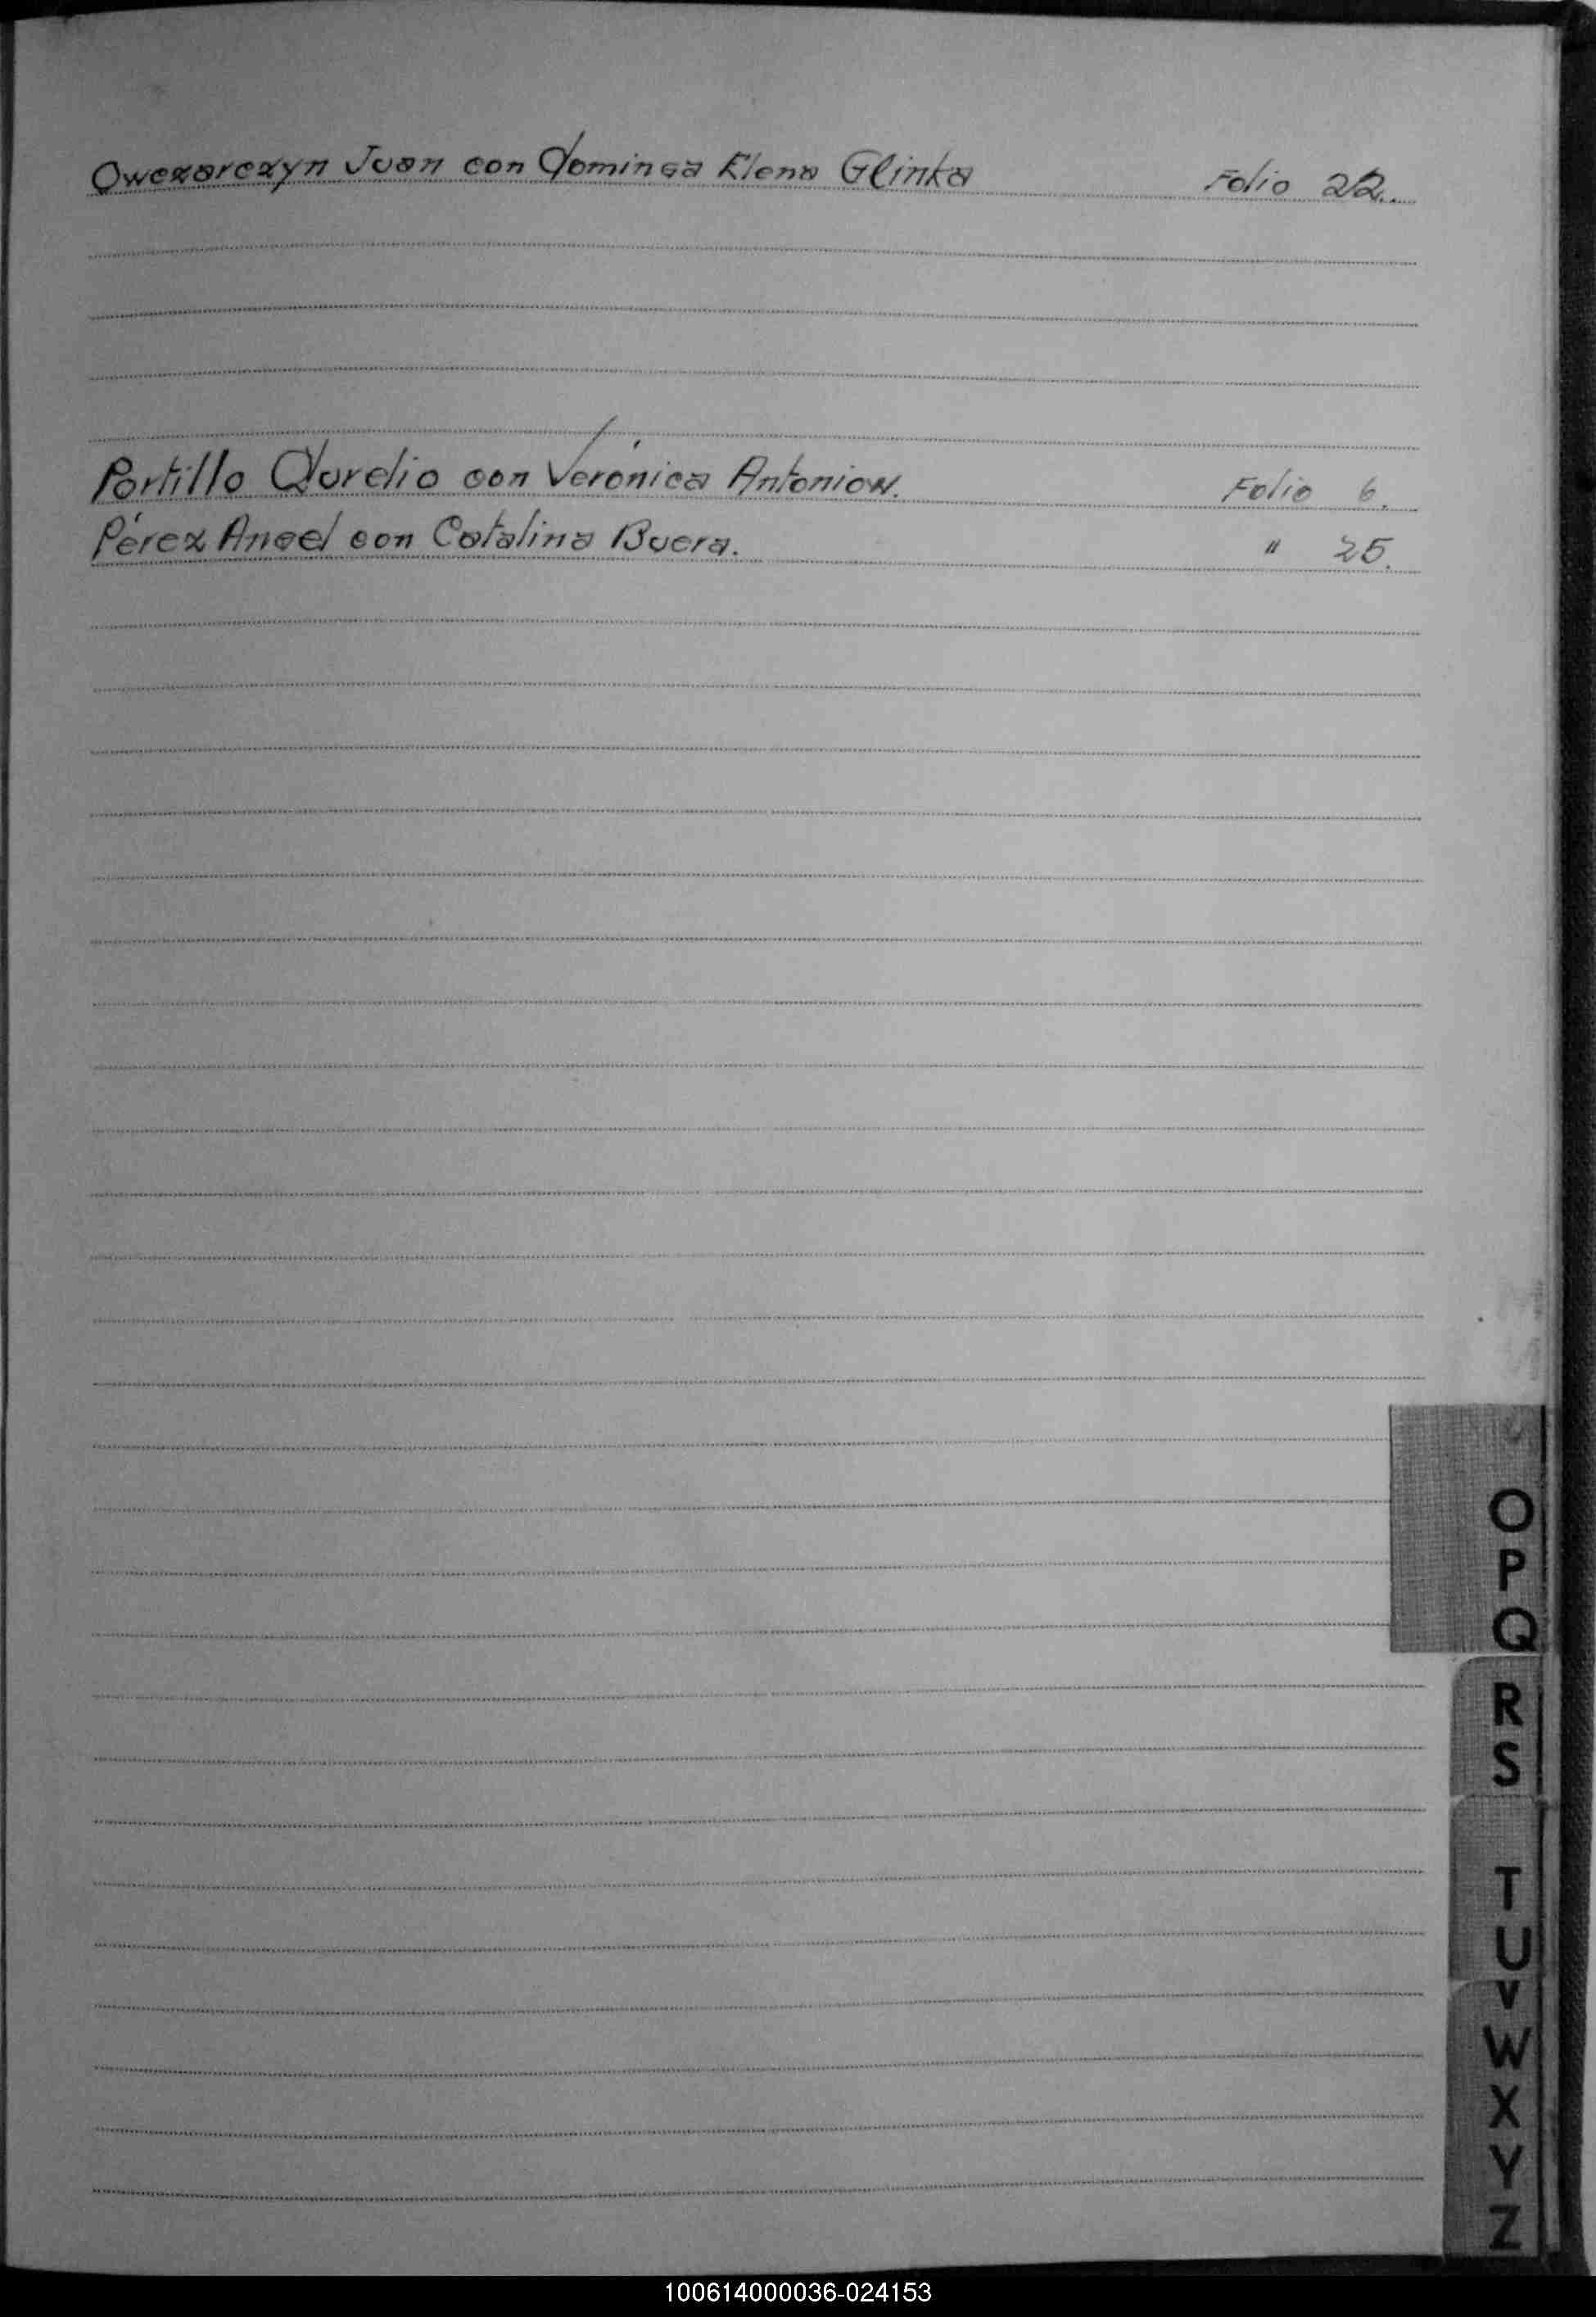 Owezarezyn Juan con Dominga Elena Glinka Folio 22.
Portillo Aurelio con Verónica Antoniow. Folio 6.
Pérez Angel con Catalina Buera. " 25.
O
P
Q
R
S
T
U
V
W
X
Y
Z
100614000036-024153